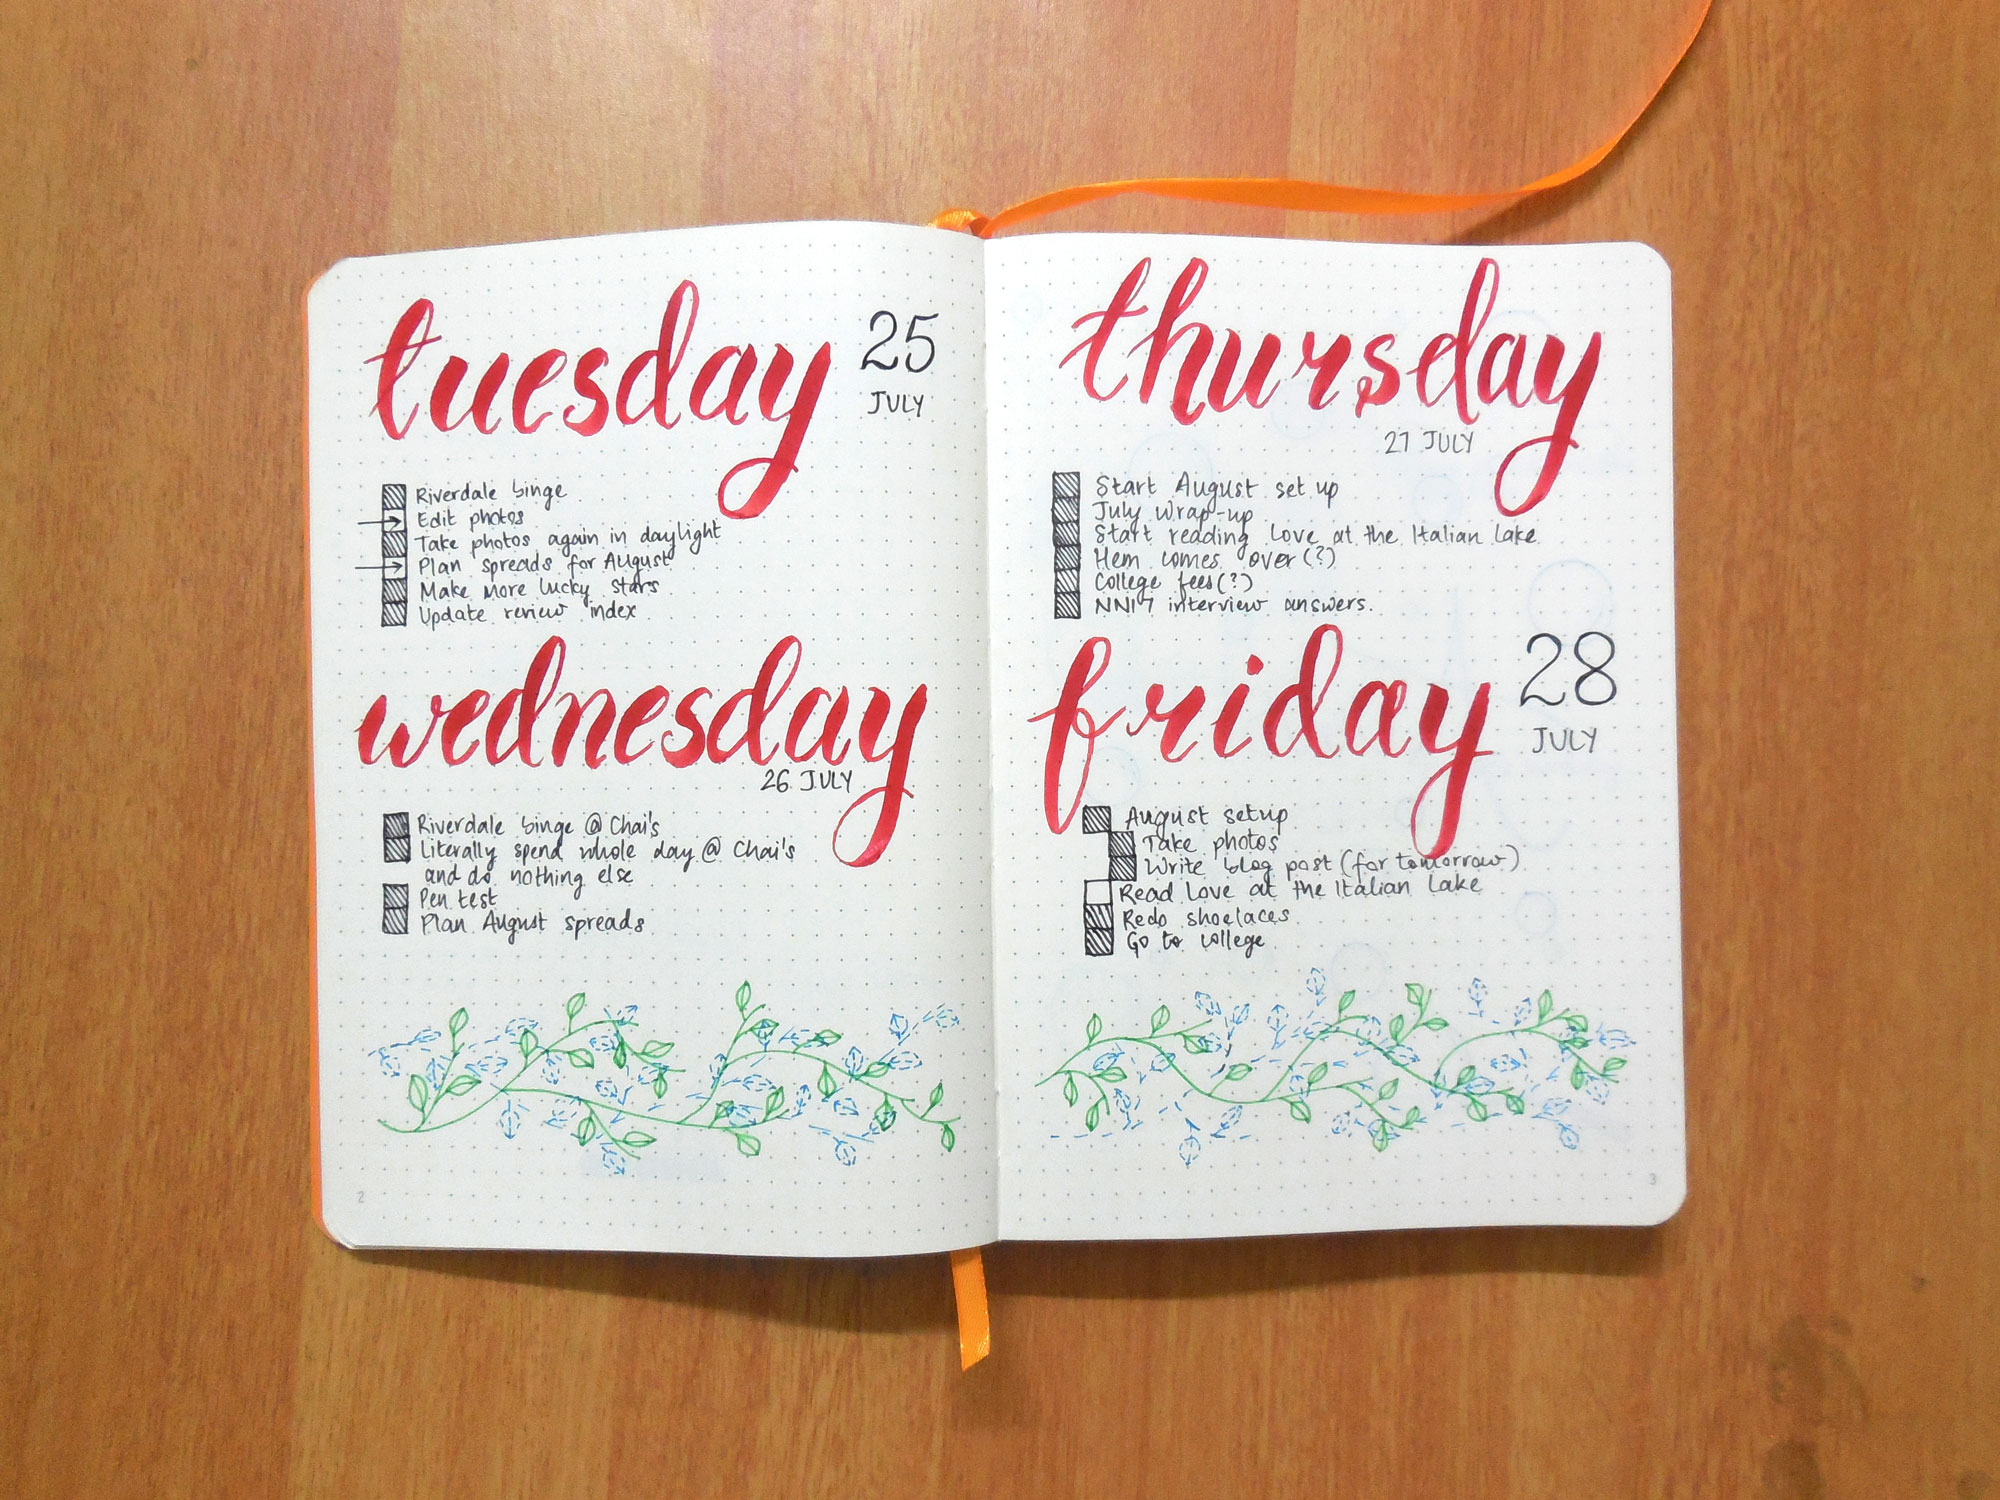 tuesday
25
JULY
Riverdale binge
Edit photos
Take photos again in daylight
Plan spreads for August
Make more lucky stars
Update review index
wednesday
26 JULY
Riverdale binge @ Chai's
Literally spend whole day @ Chai's
and do nothing else
Pen test
Plan August spreads
2
thursday
27 JULY
Start August set up
July wrap-up
Start reading Love at the Italian Lake
Hem comes over (?)
College fees (?)
NN17 interview answers.
friday
28
JULY
August setup
Take photos
Write blog post (for tomorrow)
Read Love at the Italian Lake
Redo shoelaces
Go to college
3